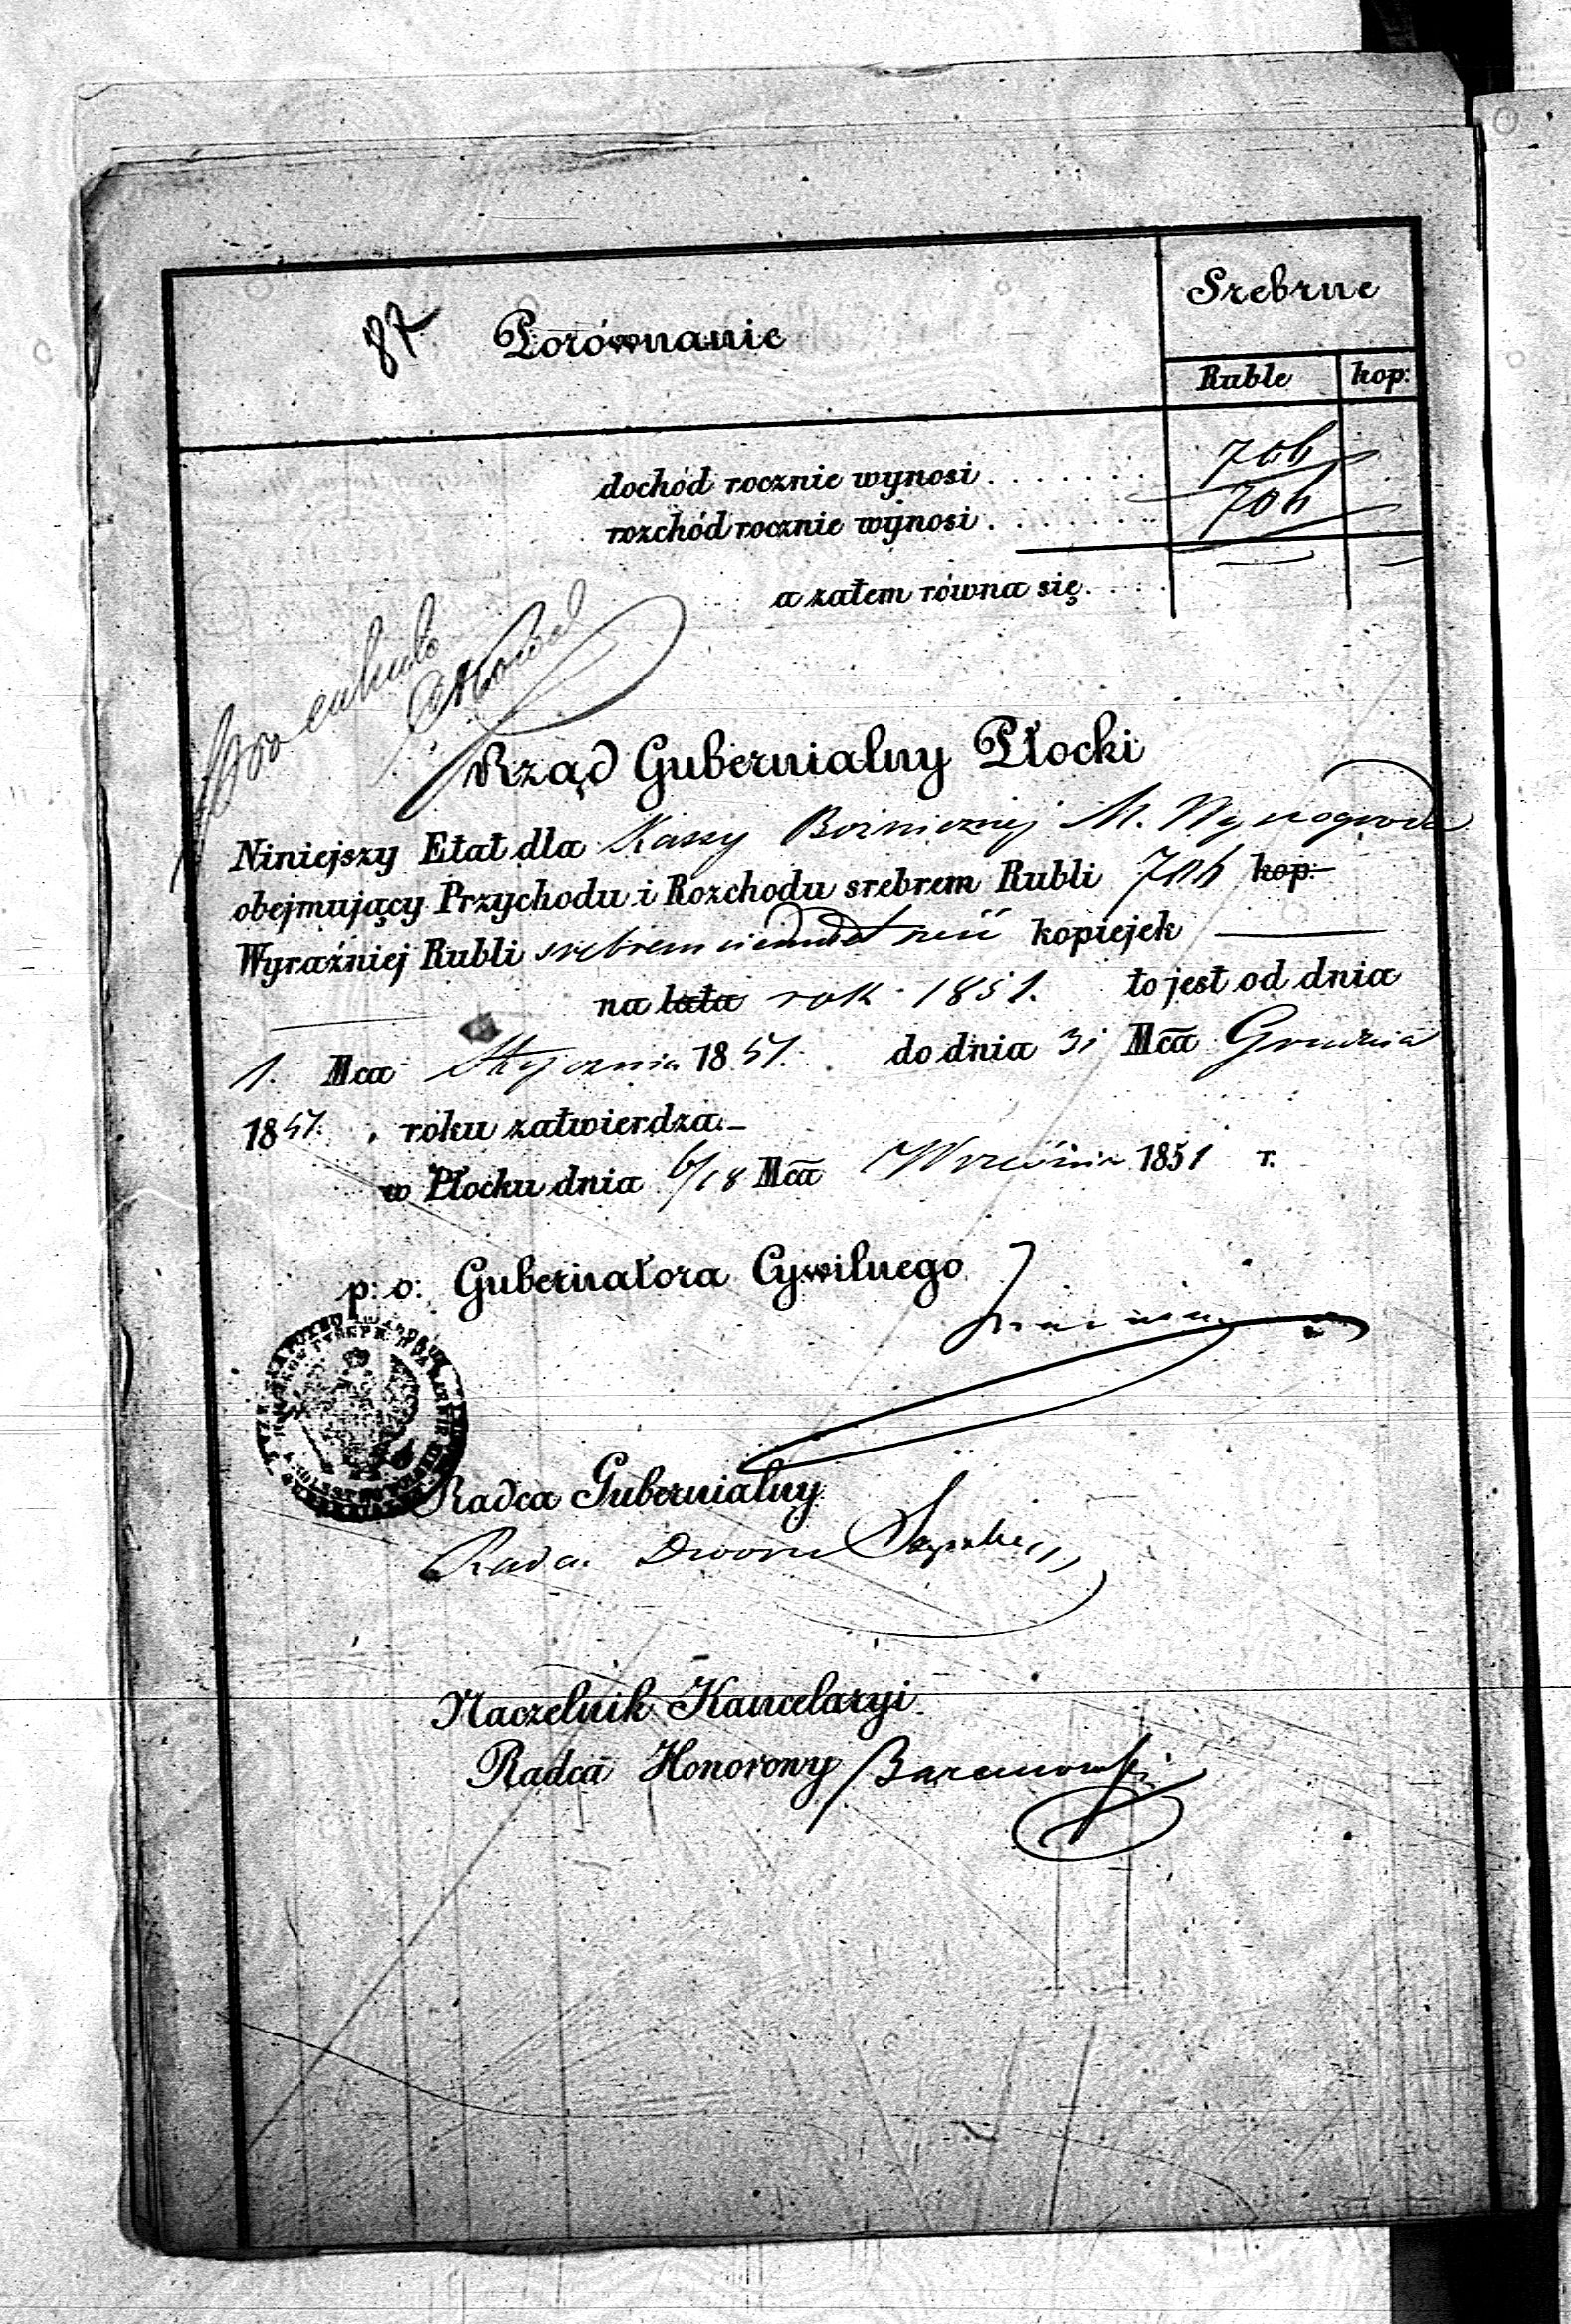 87
Porównanie
Srebrne
Ruble kop:
dochód rocznie wynosi . . . . . . . 706
rozchód rocznie wynosi . . . . . . . 706
a zatem równa się. . . .
pro calculo
Rząd Gubernialny Płocki
Niniejszy Etat dla Kassy Bożniczney M. Wyszogroda
obejmujący Przychodu i Rozchodu srebrem Rubli 706 kop:
Wyraźniej Rubli srebrem siedmset sześć kopiejek ———
na lata rok 1851. to jest od dnia
1. Mca Stycznia 1851. do dnia 31 Mca Grudnia
1851. roku zatwierdza.–
w Płocku dnia 6/18 Mca Września 1851 r.
p: o: Gubernatora Cywilnego
Radca Gubernialny
Radca Dworu
Naczelnik Kancelaryi
Radca Honorowy Baranowski